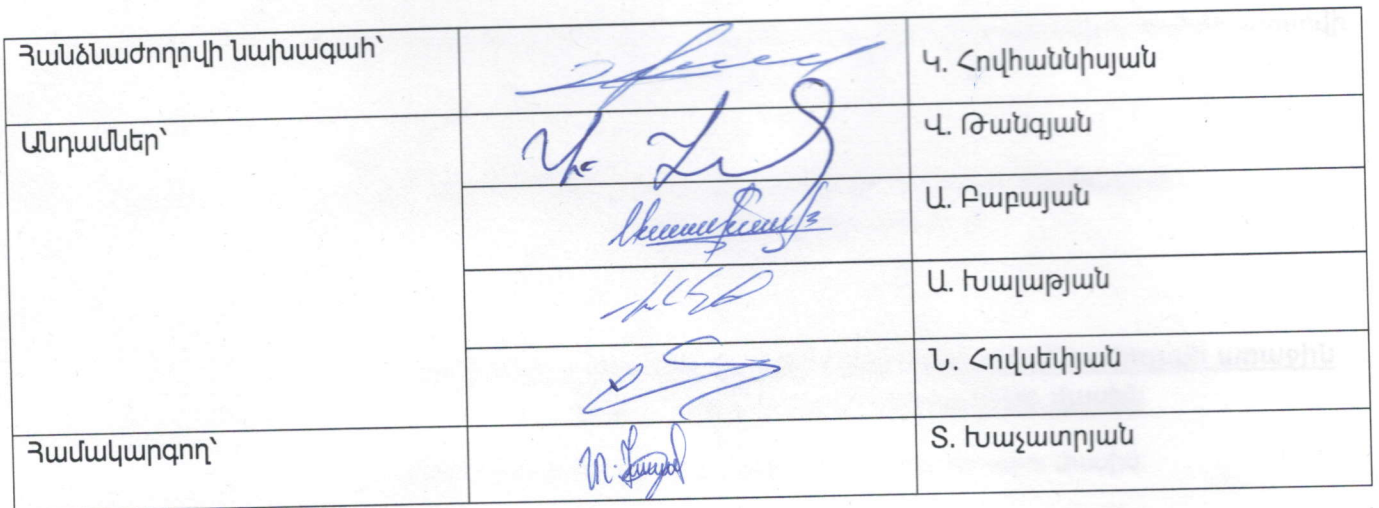 Հանձնաժողովի նախագահ՝ Կ. Հովհաննիսյան
Անդամներ՝ Վ. Թանգյան
Ա. Բաբայան
Ա. Խալաթյան
Ն. Հովսեփյան
Համակարգող՝ Տ. Խաչատրյան